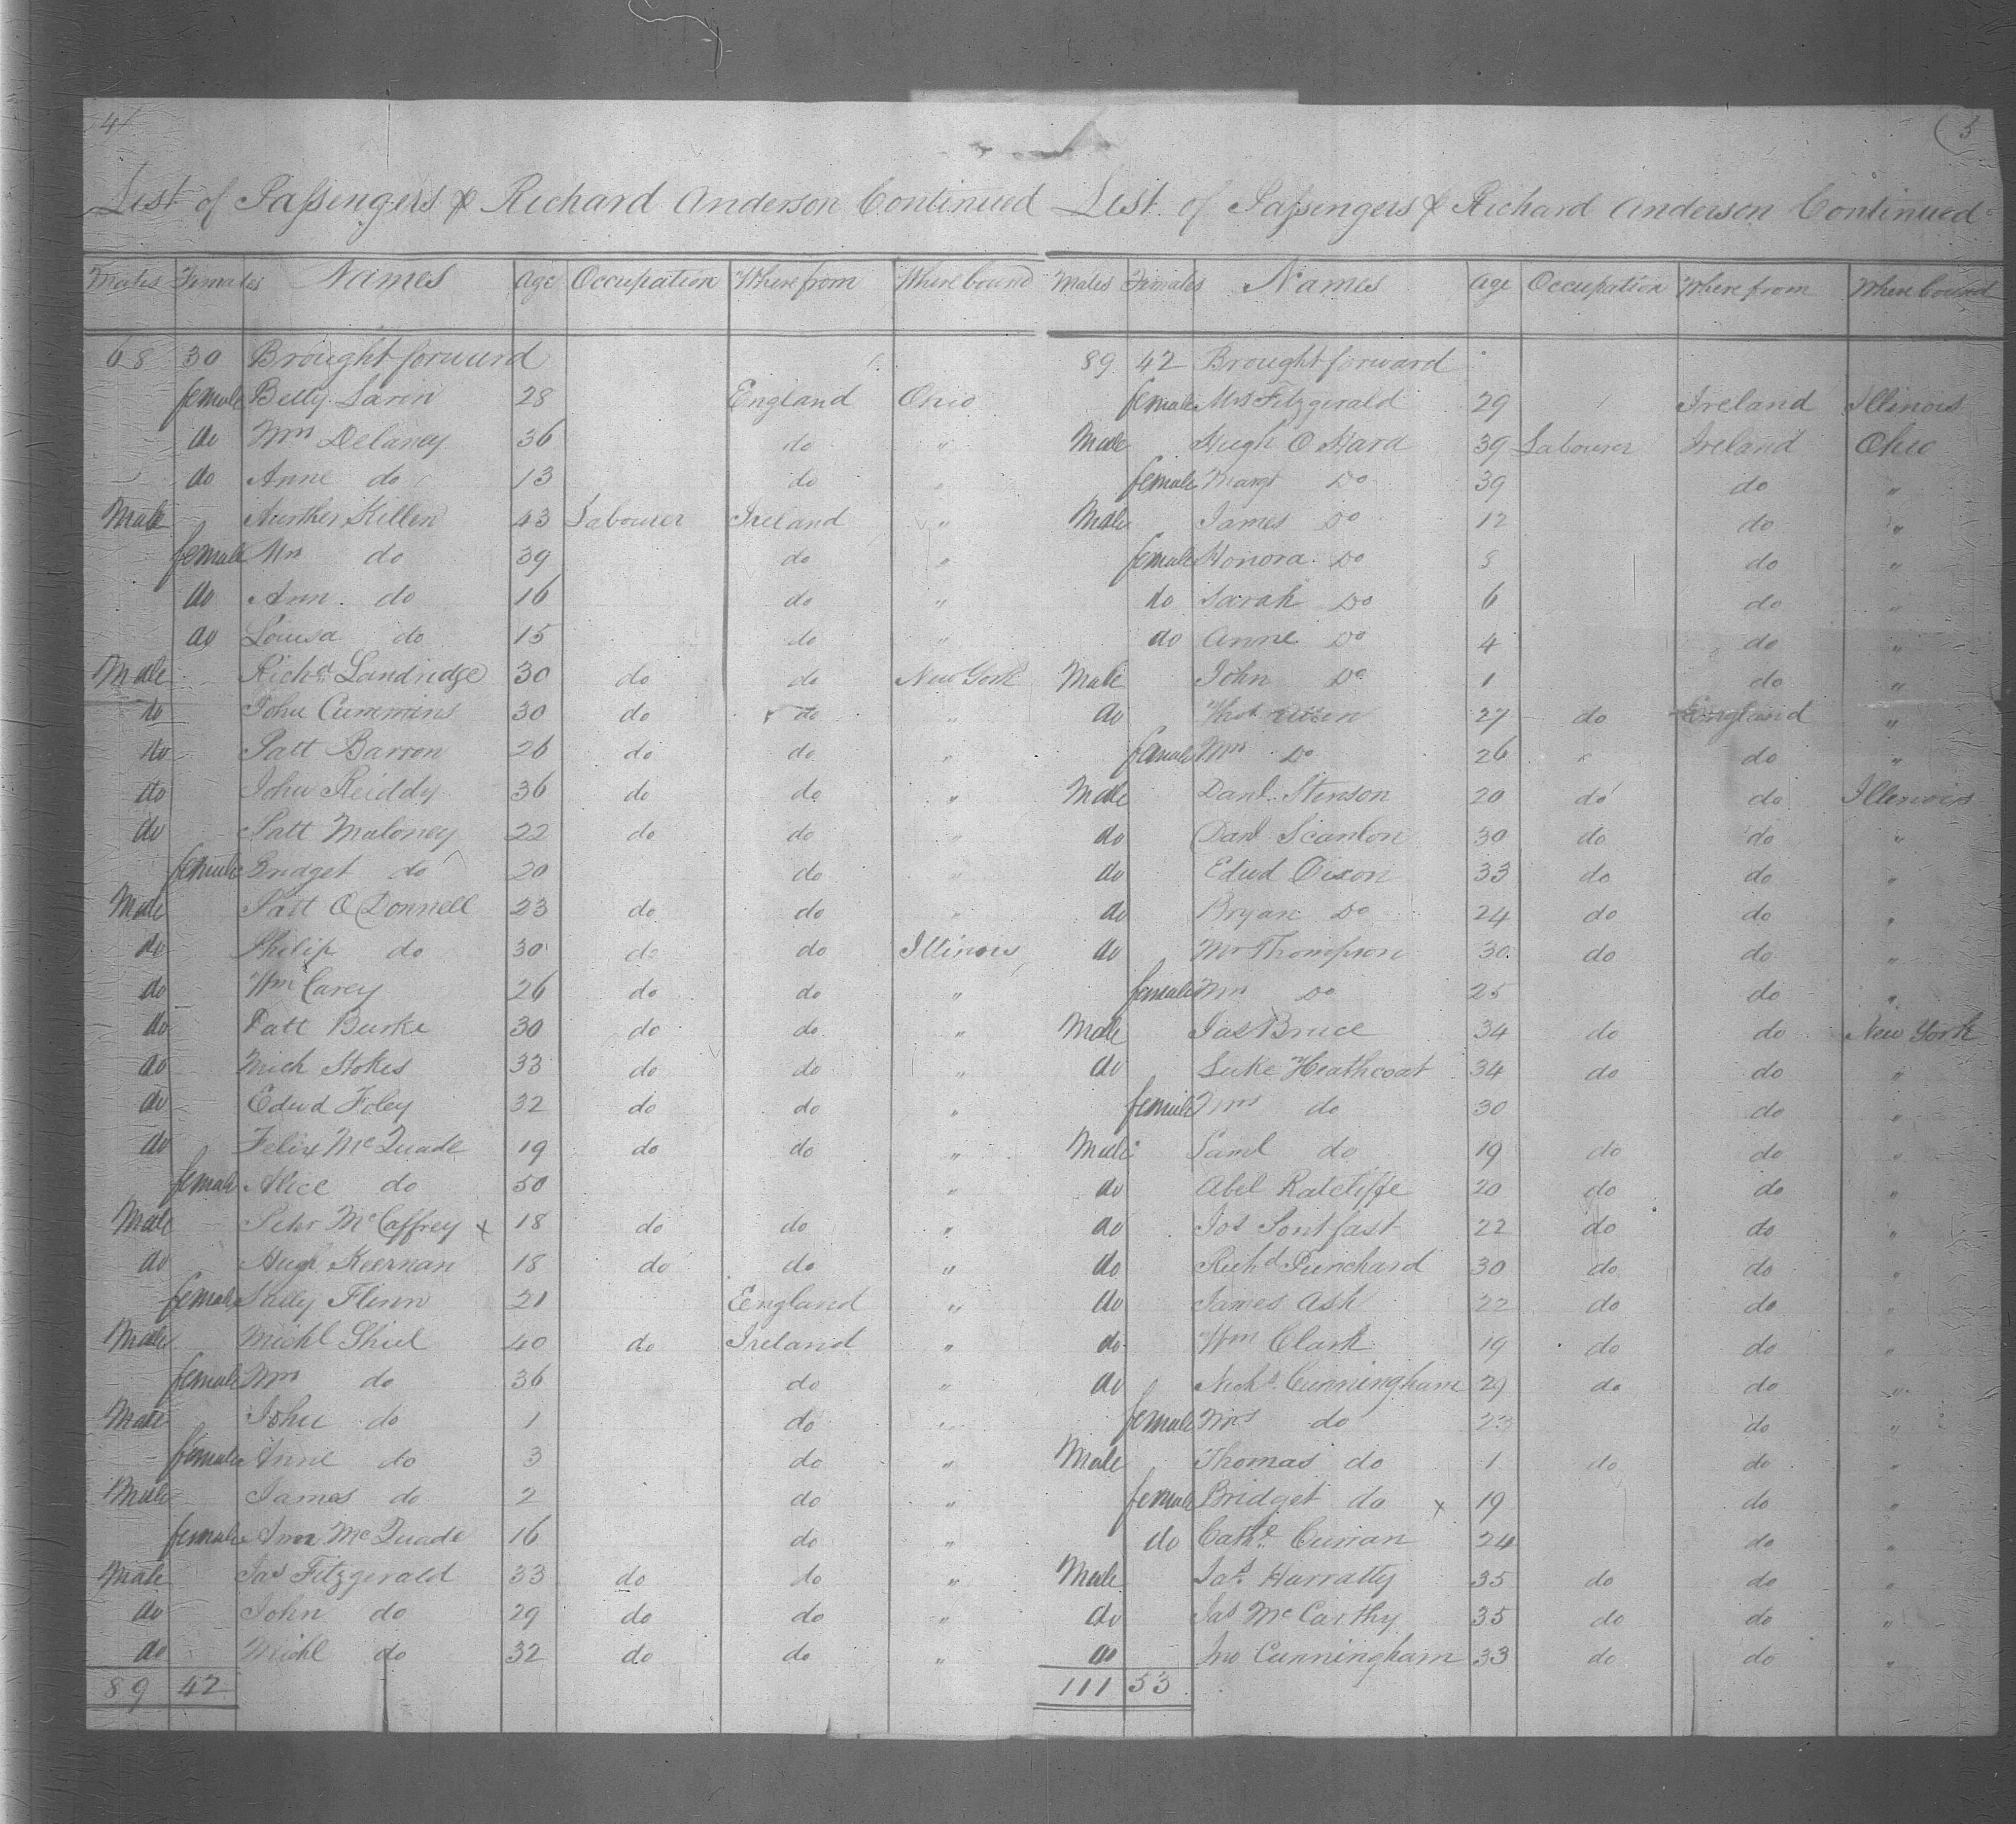 4
List of Passengers ⅌ Richard Anderson Continued
Males Females Names Age Occupation Where from Where bound
68 30 Brought forward
female Betty Larin 28 England Ohio
do Mrs Delaney 36 do "
do Anne do 13 do "
Male Aurther Killen 43 Labourer Ireland "
female Mrs do 39 do "
do Ann do 16 do "
do Louisa do 15 do "
Male Richd Landridge 30 do do New York
do John Cummins 30 do do "
do Patt Barron 26 do do "
do John Reiddy 36 do do "
do Patt Maloney 22 do do "
female Bridget do 20 do "
Male Patt O Donnell 23 do do "
do Philip do 30 do do Illinois
do Wm Carey 26 do do "
do Patt Burke 30 do do "
do Mich Stokes 33 do do "
do Edwd Foley 32 do do "
do Felix McQuade 19 do do "
female Alice do 50 "
Male Peter McCaffrey x 18 do do "
do Hugh Keernan 18 do do "
female Sally Flinn 21 England "
Male Michl Shiel 40 do Ireland "
female Mrs do 36 do "
Male John do 1 do "
female Anne do 3 do "
Male James do 2 do "
female Ann McQuade 16 do "
Male Jas Fitzgerald 33 do do "
do John do 29 do do "
do Michl do 32 do do "
89 42
5
List of Passengers ⅌ Richard Anderson Continued
Males Females Names Age Occupation Where from Where bound
89 42 Brought forward
female Mrs Fitzgerald 29 Ireland Illinois
Male Hugh O Hara 39 Labourer Ireland Ohio
female Margt Do 39 do "
Male James Do 12 do "
female Honora Do 8 do "
do Sarah Do 6 do "
do Anne Do 4 do "
Male John Do 1 do "
do Thos 27 do England "
female Mrs Do 26 do "
Male Danl Stenson 20 do do Illenois
do Danl Scanlon 30 do do "
do Edwd Dixon 33 do do "
do Bryan Do 24 do do "
do Mr Thompson 30 do do "
female Mrs Do 25 do "
Male Jas Bruce 34 do do New York
do Luke Heathcoat 34 do do "
female Mrs do 30 do "
Male Saml do 19 do do "
do Abel Ratcliffe 20 do do "
do Jos Pontfast 22 do do "
do Richd Punchard 30 do do "
do James Ash 22 do do "
do Wm Clark 19 do do "
do Nichs Cunningham 29 do do "
female Mrs do 23 do "
Male Thomas do 1 do do "
female Bridget do x 19 do "
do Cathe Curran 24 do "
Male Jas Harratty 35 do do "
do Jas McCarthy 35 do do "
do Jno Cunningham 33 do do "
111 53